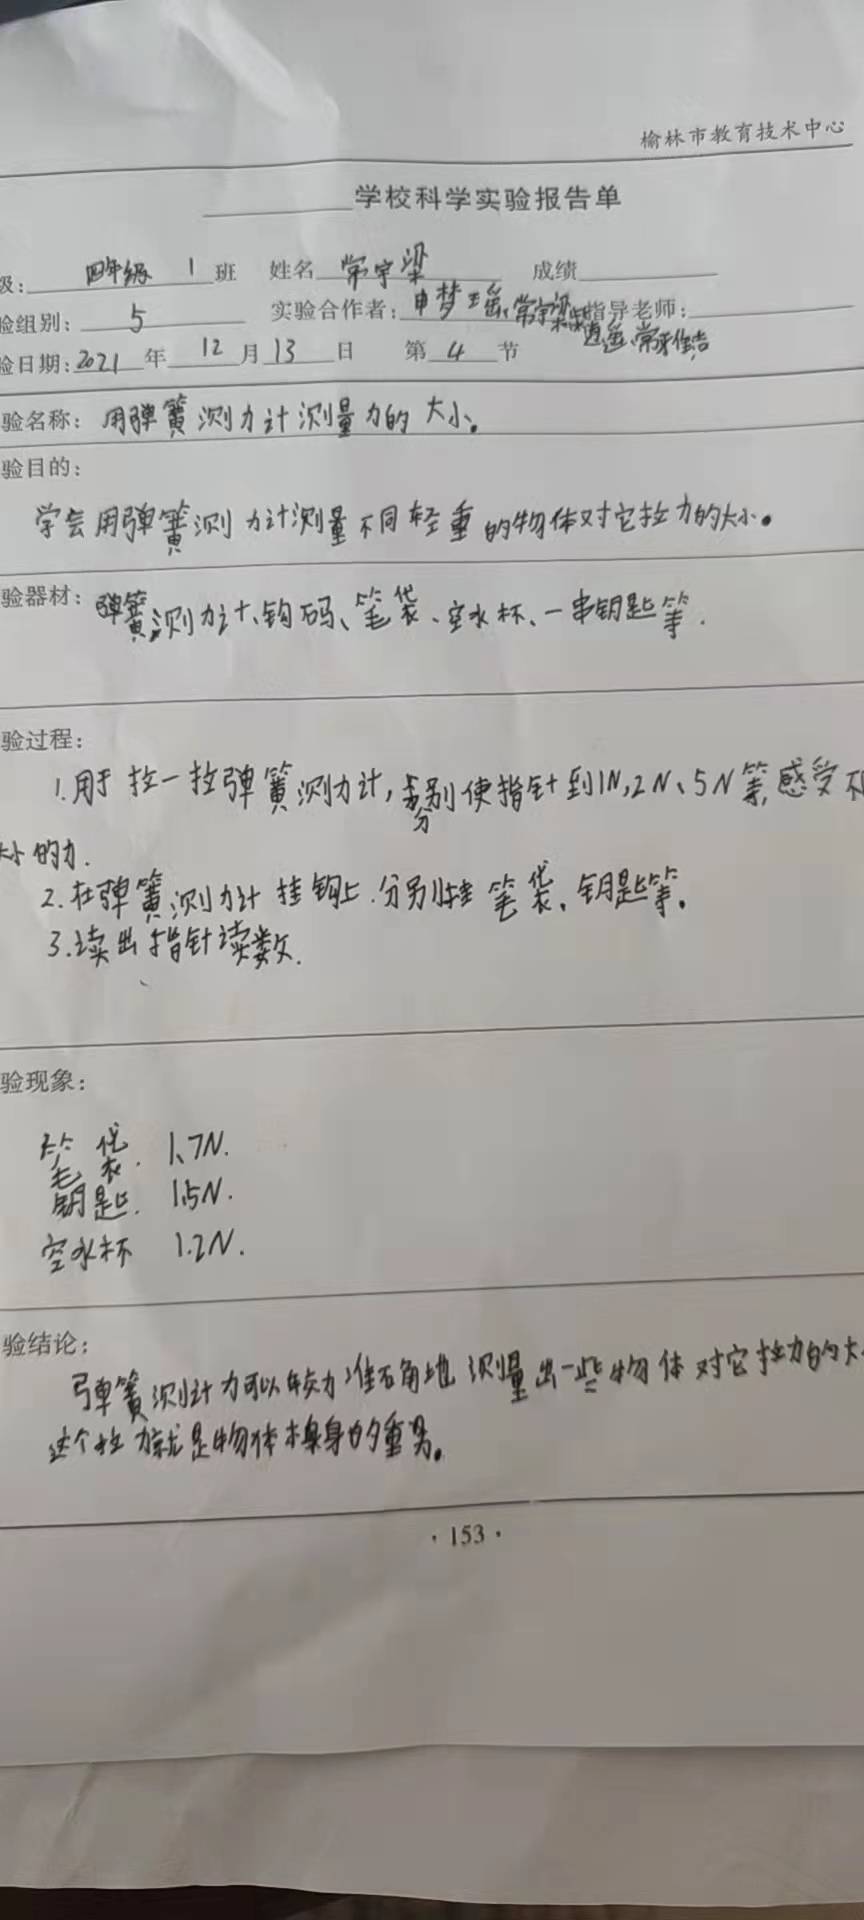 榆林市教育技术中心
学校科学实验报告单
级: 四年级 1 班 姓名 常宇梁 成绩
验组别: 5 实验合作者: 申梦瑶、常宇梁 指导老师:
逍遥、常
验日期: 2021 年 12 月 13 日 第 4 节
验名称: 用弹簧测力计测量力的大小。
验目的:
学会用弹簧测力计测量不同轻重的物体对它拉力的大小。
验器材: 弹簧测力计、钩码、笔袋、空水杯、一串钥匙等.
验过程:
1.用手拉一拉弹簧测力计,分别使指针到1N,2N、5N等,感受不
大小的力.
2.在弹簧测力计挂钩上.分别挂笔袋、钥匙等。
3.读出指针读数.
验现象:
笔袋. 1.7N.
钥匙. 1.5N.
空水杯 1.2N.
验结论:
弹簧测计力可以较为准确地测量出一些物体对它拉力的大
这个拉力就是物体本身的重量。
·153·